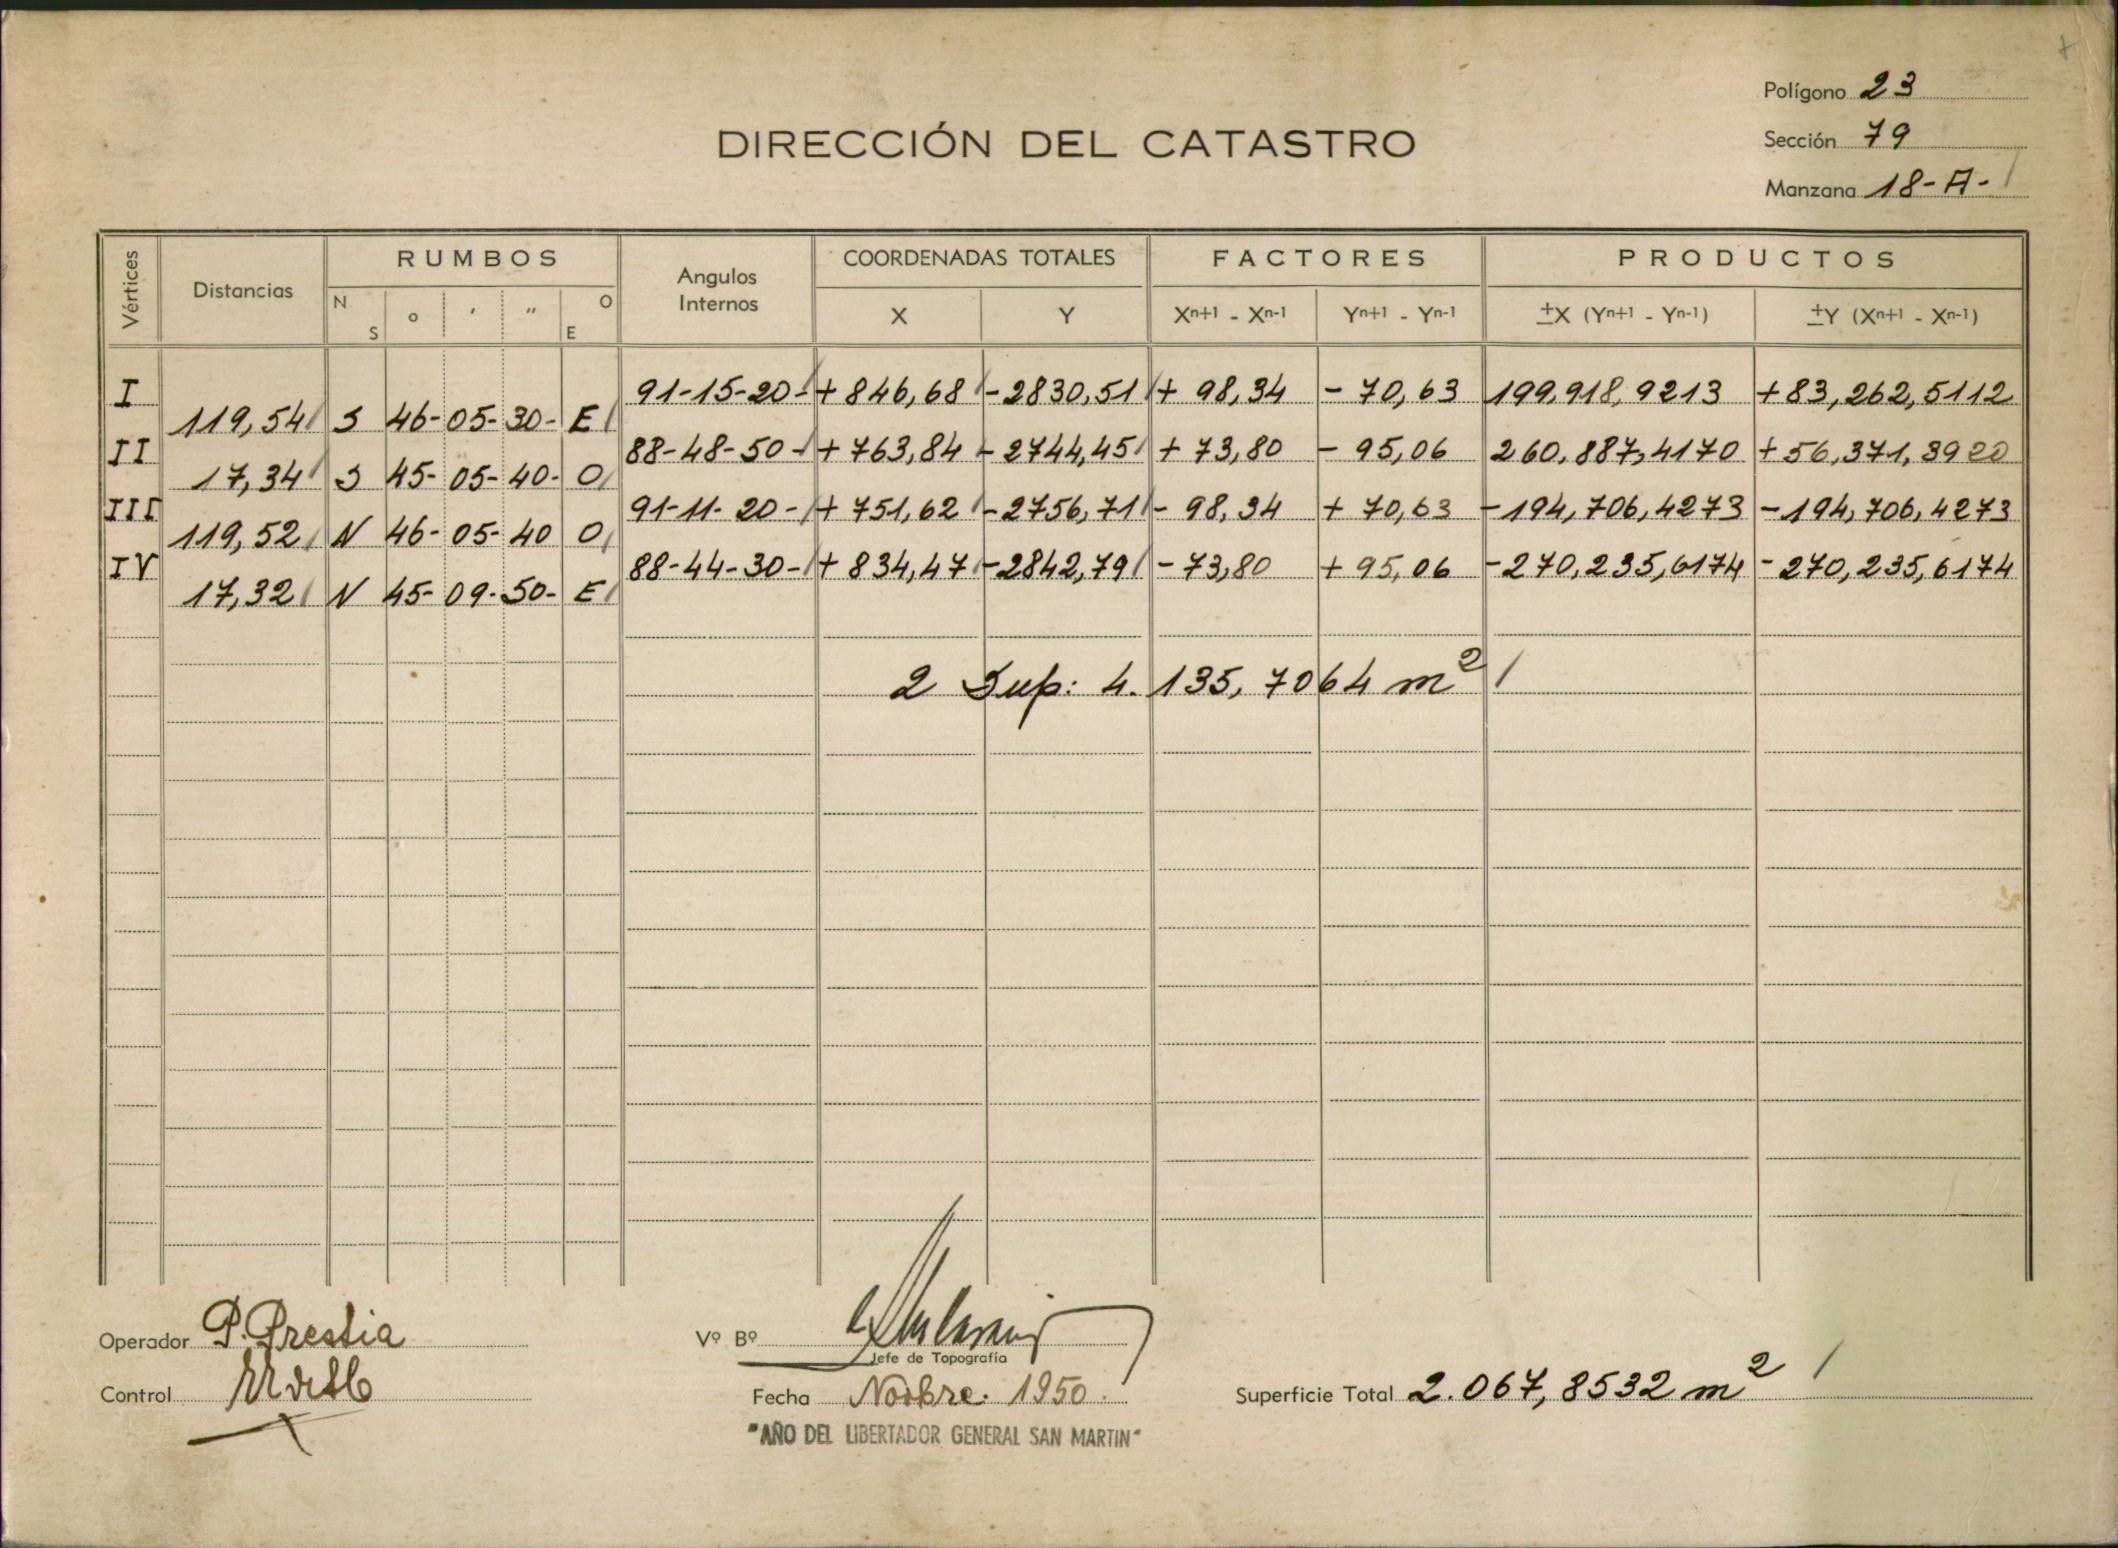 Polígono 23
DIRECCIÓN DEL CATASTRO
Sección 79
Manzana 18-A-
Vértices Distancias RUMBOS Angulos Internos COORDENADAS TOTALES FACTORES PRODUCTOS
N S o ' " O E X Y Xn+1 - Xn-1 Yn+1 - Yn-1 ±X (Yn+1 - Yn-1) ±Y (Xn+1 - Xn-1)
I 91-15-20- +846,68 -2830,51 + 98,34 - 70,63 199,918,9213 +83,262,5112
119,54 S 46- 05- 30- E
II 88-48-50- + 763,84 - 2744,45 + 73,80 - 95,06 260,887,4170 +56,371,3920
17,34 S 45- 05- 40- O
III 91-11-20- + 751,62 -2756,71 - 98,34 + 70,63 -194,706,4273 -194,706,4273
119,52 N 46- 05- 40 O
IV 88-44-30- + 834,47 -2842,79 - 73,80 + 95,06 -270,235,6174 -270,235,6174
17,32 N 45- 09- 50- E
2 Sup: 4.135,7064 m²
Operador P. Prestia
Vº Bº
Jefe de Topografía
Control
Fecha Novbre. 1950.
Superficie Total 2.067,8532 m²
"AÑO DEL LIBERTADOR GENERAL SAN MARTIN"